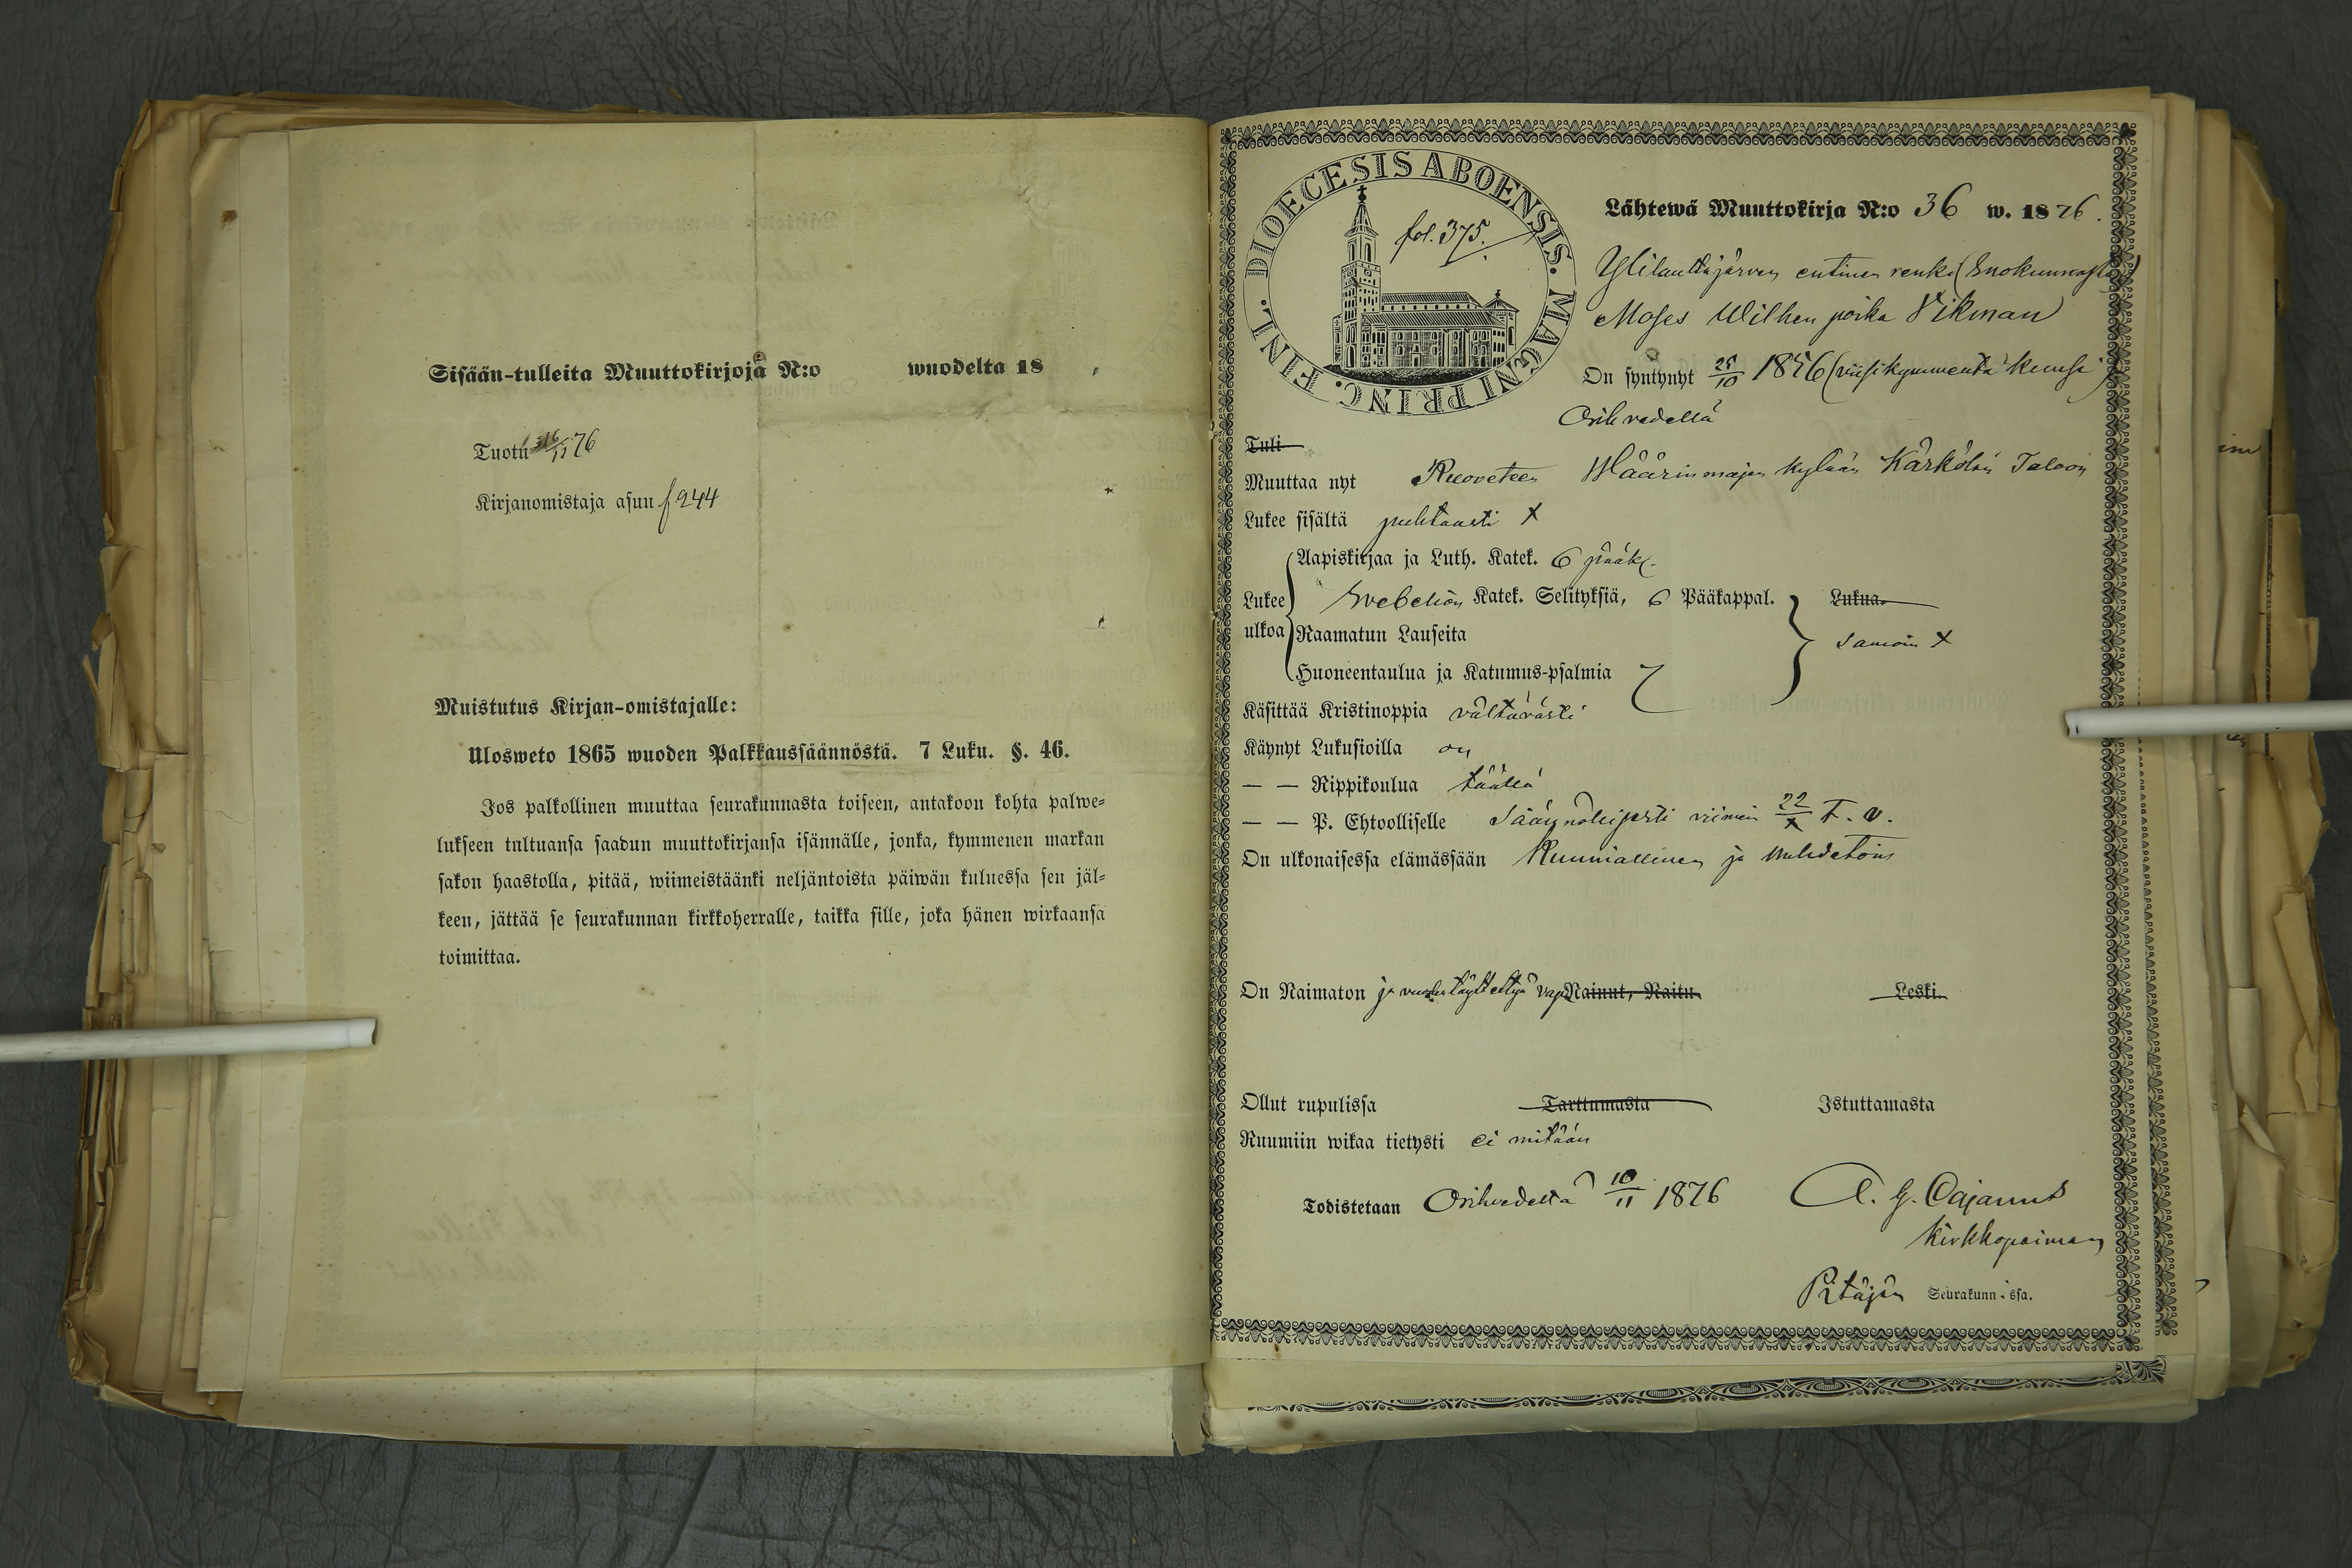 Sisään-tulleita Muuttokirjoja N:o wuodelta 18 ,
Tuotu 16/11 76
Kirjanomistaja asuu f 244
Muistutus Kirjan-omistajalle:
Ulosweto 1865 wuoden Palkkaussäännöstä. 7 Luku. §. 46.
Jos palkollinen muuttaa seurakunnasta toiseen, antakoon kohta palwe=
lukseen tultuansa saadun muuttokirjansa isännälle, jonka, kymmenen markan
sakon haastolla, pitää, wiimeistäänki neljäntoista päiwän kuluessa sen jäl=
keen, jättää se seurakunnan kirkkoherralle, taikka sille, joka hänen wirkaansa
toimittaa.
DIOECESIS ABOENSIS. MAGNI PRINC. FINL.
fol. 375.
Lähtewä Muuttokirja N:o 36 w. 1876.
entinen renki
Moses Wilhen poika Vikman
On syntynyt 25/10 1856 (viisikymmentä kuusi)
Orihvedellä
Tuli
Muuttaa nyt Ruoveteen Wäärinmajan kylään Kärkölän Taloon
Lukee sisältä puhtaasti X
Aapiskirjaa ja Luth. Katek. 6 pääk.
Lukee Svebelion Katek. Selityksiä, 6 Pääkappal. Lukua.
ulkoa Raamatun Lauseita samoin X
Huoneentaulua ja Katumus-psalmia
Käsittää Kristinoppia välttävästi
Käynyt Lukusioilla on
— — Rippikoulua täällä
— — P. Ehtoolliselle säännöllisesti viimein 22/X T. v.
On ulkonaisessa elämässään Kunniallinen ja nuhdetoin
On Naimaton ja Nainut, Naitu Leski.
Ollut rupulissa Tarttumasta Istuttamasta
Ruumiin wikaa tietysti ei mitään
Todistetaan Orihvedellä 10/11 1876 A. G. Cajanus
Kirkkopaiman
Pitäjän Seurakunn. ssa.